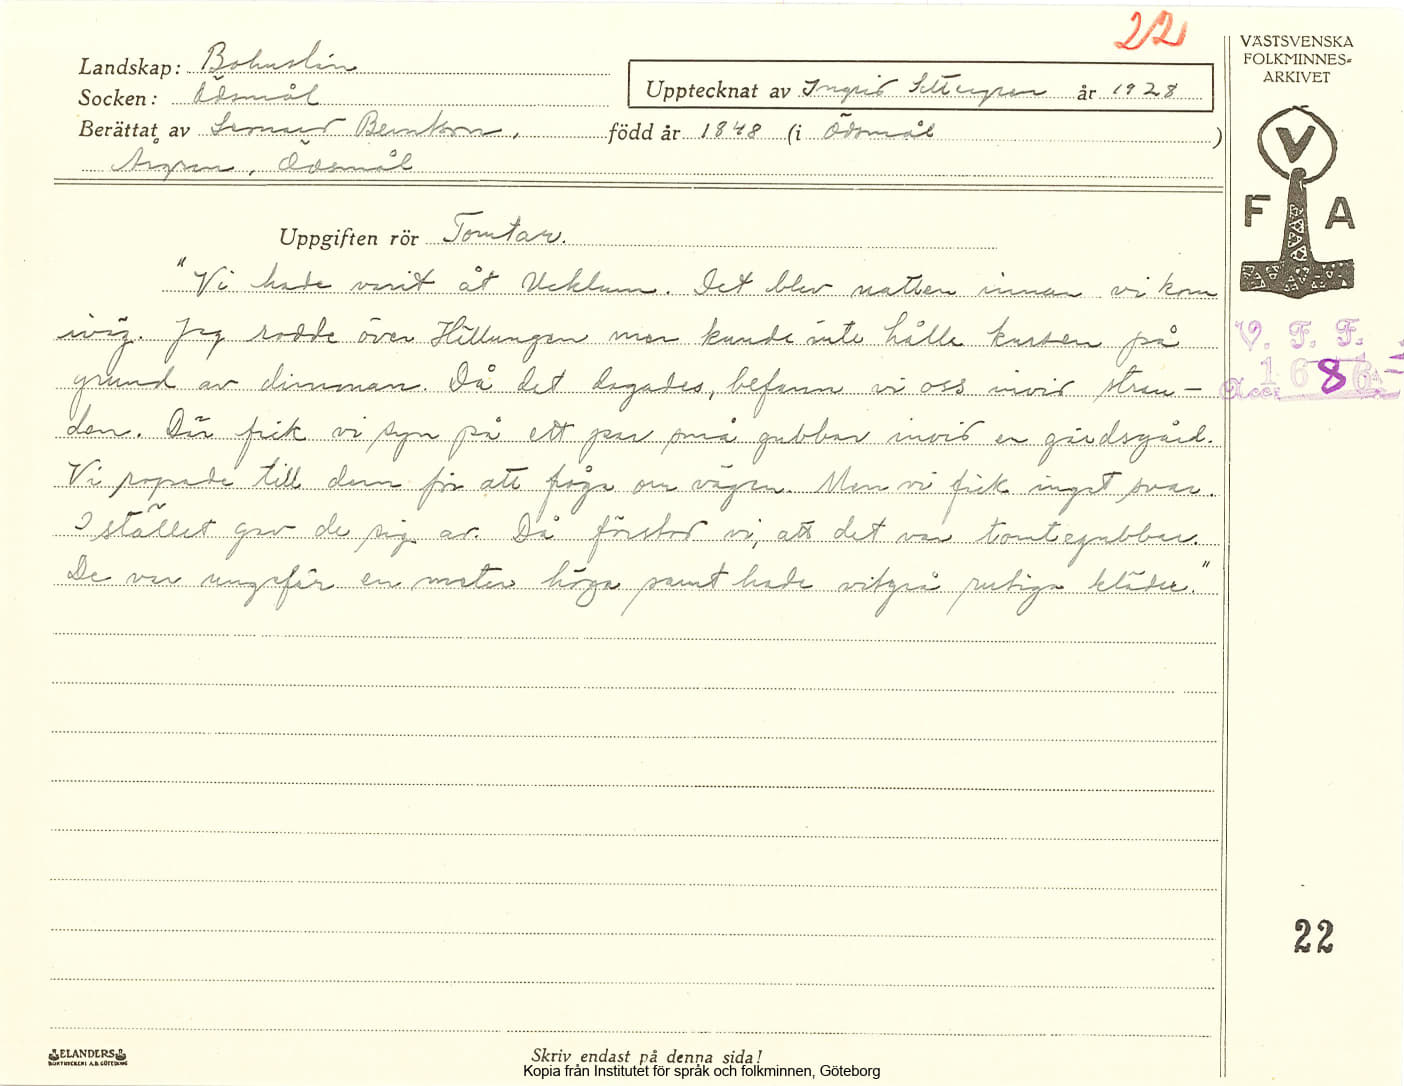 22
VÄSTSVENSKA
FOLKMINNES-
ARKIVET
Landskap: Bohuslän
Socken: Ödsmål
Upptecknat av Ingrid Settergren år 1928
Berättat av Leonard Berntson, född år 1848 (i Ödsmål)
Ödsmål
V F A
Uppgiften rör Tomtar.
"Vi hade varit åt Uchlum. Det blev natten innan vi kom
iväg. Jag rodde över Hällungen men kunde inte hålla kursen på
grund av dimman. Då det dagades, befann vi oss invid stran-
den. Där fick vi syn på ett par små gubbar invid en gärdsgård.
Vi ropade till dem för att fråga om vägen. Men vi fick inget svar.
I stället gav de sig av. Då förstod vi, att det var tomtegubbar.
De var ungefär en meter höga samt hade vitgrå rutiga kläder."
V. F. F.
1686
Acc:
22
ELANDERS
BOKTRYCKERI A.B. GÖTEBORG
Skriv endast på denna sida!
Kopia från Institutet för språk och folkminnen, Göteborg